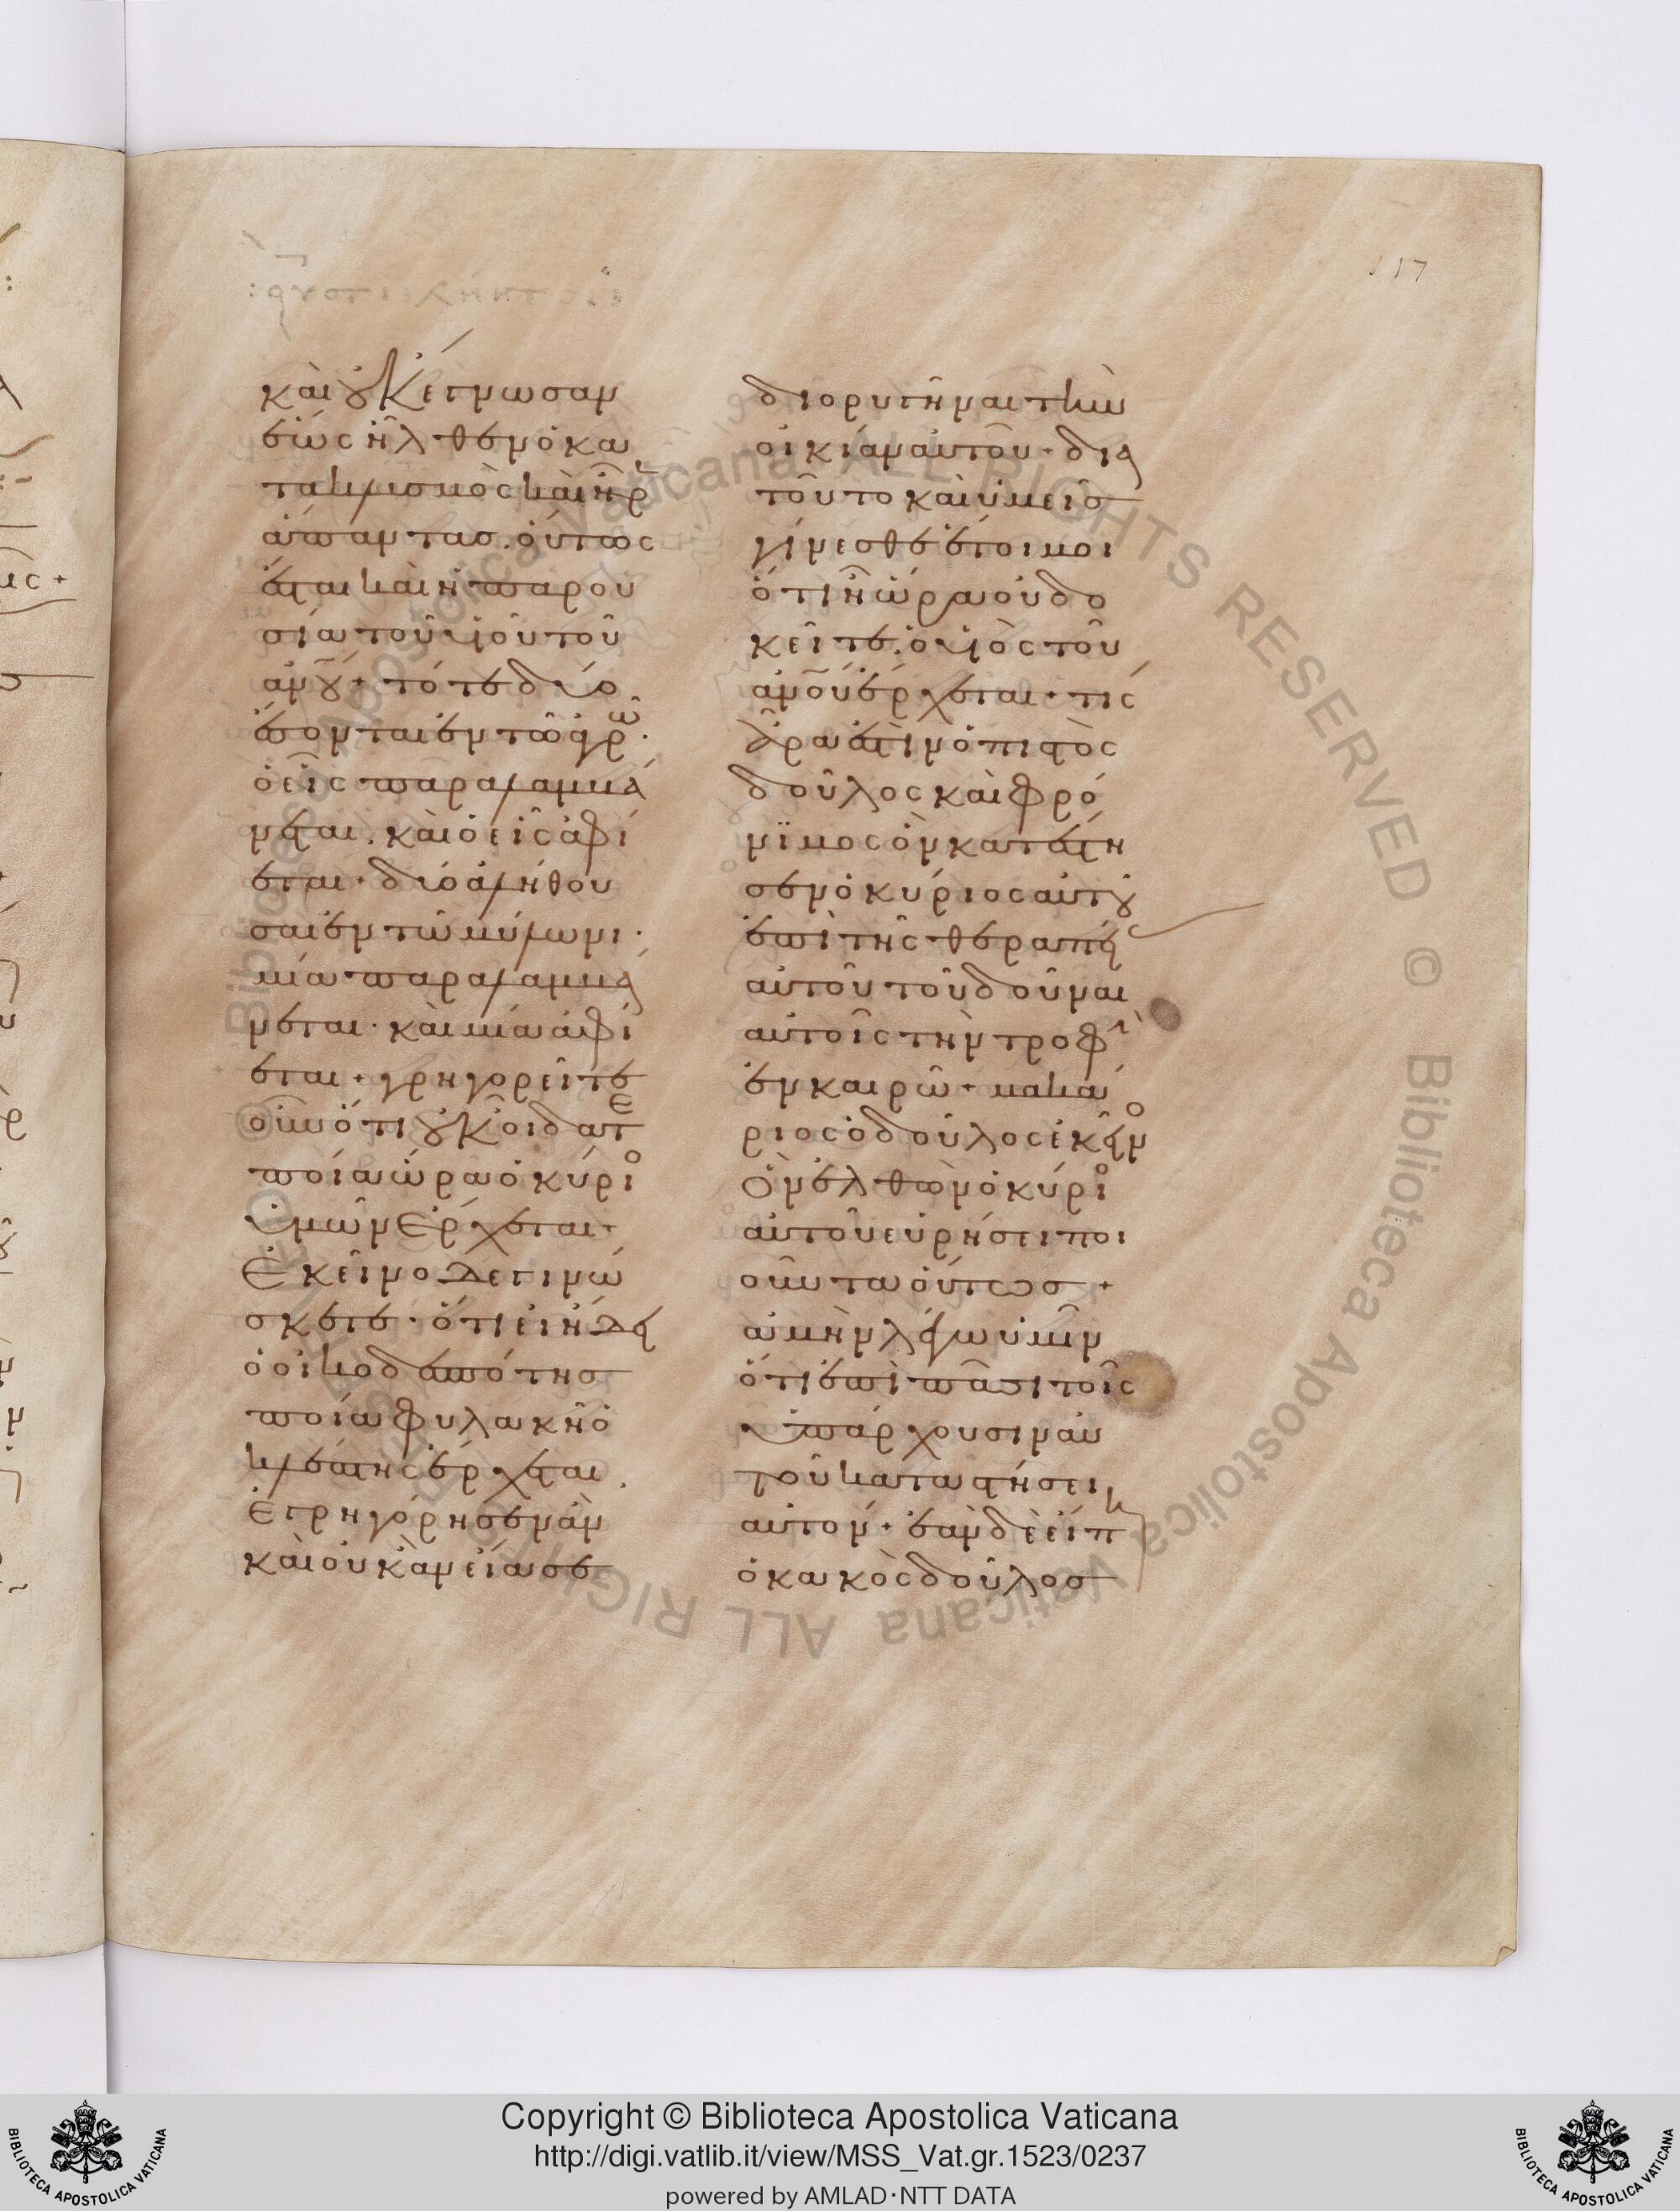 117
καὶ οὐκ ἔγνωσαν
ἕως ἦλθεν ὁ κα
τακλυσμὸς καὶ ἦρ
ἅπαντας. οὕτως
ἔσται καὶ ἡ παρου
σία τοῦ υἱοῦ τοῦ
ἀνου + τότε δύο
ἔσονται ἐν τῶ ἀγρω.
ὁ εἷς παραλαμβά
νεται. καὶ ὁ εἷς ἀφί
εται · δύο ἀλήθου
σαι ἐν τῶ μύλωνι ·
μία παραλαμβά
νεται · καὶ μία ἀφί
εται + γρηγορεῖτε
οὖν ὅτι οὐκ οἴδατε
ποία ὥρα ὁ κύριο
ὑμῶν ἔρχεται ·
Ἐκεῖνο δὲ γινώ
σκετε · ὅτι εἰ ἤδει
ὁ οἰκοδεσπότης
ποία φυλακῆ ὁ
κλέπτης ἔρχεται.
ἐγρηγόρησεν ἂν
καὶ οὐκ ἂν εἴασε
διορυγῆναι τὴν
οἰκίαν αὐτοῦ · δια
τοῦτο καὶ ὑμεῖς
γίνεσθε ἕτοιμοι
ὅτι ἧ ὥρα οὐ δο
κεῖτε. ὁ υἱὸς τοῦ
ἀνου ἔρχεται + τίς
ἄρα ἐστὶν ὁ πιστὸς
δοῦλος καὶ φρό
νϊμος ὃν καταστή
σεν ὁ κύριος αὐτοῦ
ἐπὶ τῆς θεραπεί
αὐτοῦ τοῦ δοῦναι
αὐτοῖς τὴν τροφὴ
ἐν καιρῶ + μακά
ριος ὁ δοῦλος ἐκεῖνο
ὃν ἐλθὼν ὁ κύριο
αὐτοῦ εὑρήσει ποι
οῦντα οὕτως +
ἀμὴν λέγω ὑμῖν
ὅτι ἐπὶ πᾶσι τοῖς
ὑπάρχουσιν αὐ
τοῦ καταστήσει
αὐτον + ἐὰν δὲ εἴπη
ὁ κακὸς δοῦλος
Copyright © Biblioteca Apostolica Vaticana
http://digi.vatlib.it/view/MSS_Vat.gr.1523/0237
powered by AMLAD·NTT DATA
BIBLIOTECA APOSTOLICA VATICANA
BIBLIOTECA APOSTOLICA VATICANA
© Biblioteca Apostolica Vaticana ALL RIGHTS RESERVED © Biblioteca Apostolica Vaticana ALL RIGHTS RESERVED